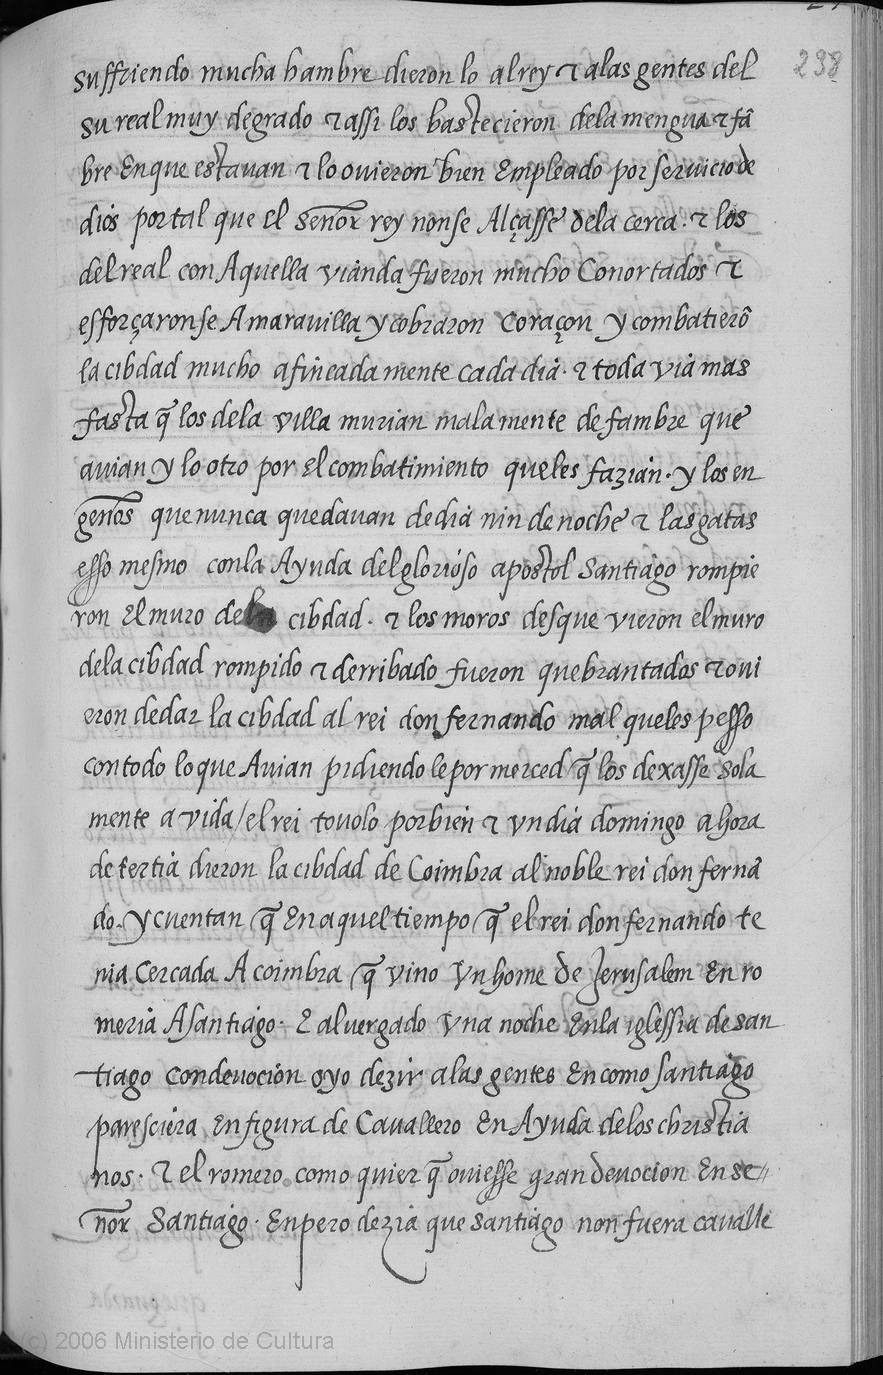 238
suffriendo mucha hambre dieron lo al rey ⁊ alas gentes del
su real muy degrado ⁊ assi los bastecieron dela mengua ⁊ fã
bre Enque estauan ⁊ lo ouieron bien Empleado por seruicio de
dios portal que el senor rey nonse Alçasse dela cerca · ⁊ los
del real con Aquella vianda fueron mucho Conortados ⁊
esforçaronse Amarauilla y cobraron Coraçon y combatierõ
la cibdad mucho afincadamente cada dia · ⁊ toda via mas
fasta q̃ los dela villa murian malamente de fambre que
auian y lo otro por el combatimiento queles fazian · y los en
genos que nunca quedauan de dia nin de noche ⁊ las gatas
esso mesmo conla Ayuda del glorioso apostol Santiago rompie
ron El muro dela cibdad · ⁊ los moros desque vieron el muro
dela cibdad rompido ⁊ derribado fueron quebrantados ⁊ oui
eron dedar la cibdad al rei don fernando mal queles pesso
contodo lo que Auian pidiendole por merced q̃ los dexasse sola
mente a vida / el rei touolo por bien ⁊ vn dia domingo a hora
de tertia dieron la cibdad de Coimbra al noble rei don fernã
do. y cuentan q̃ En aquel tiempo q̃ el rei don fernando te
nia Cercada A coimbra q̃ vino vn home de Jerusalem En ro
meria A santiago · E aluergado vna noche Enla iglessia de san
tiago con deuocion oyo dezir alas gentes En como santiago
paresciera En figura de Cauallero En Ayuda delos christia
nos · ⁊ el romero como quier q̃ ouiesse gran deuocion En se
ñor Santiago · Enpero dezia que santiago non fuera caualle
(c) 2006 Ministerio de Cultura